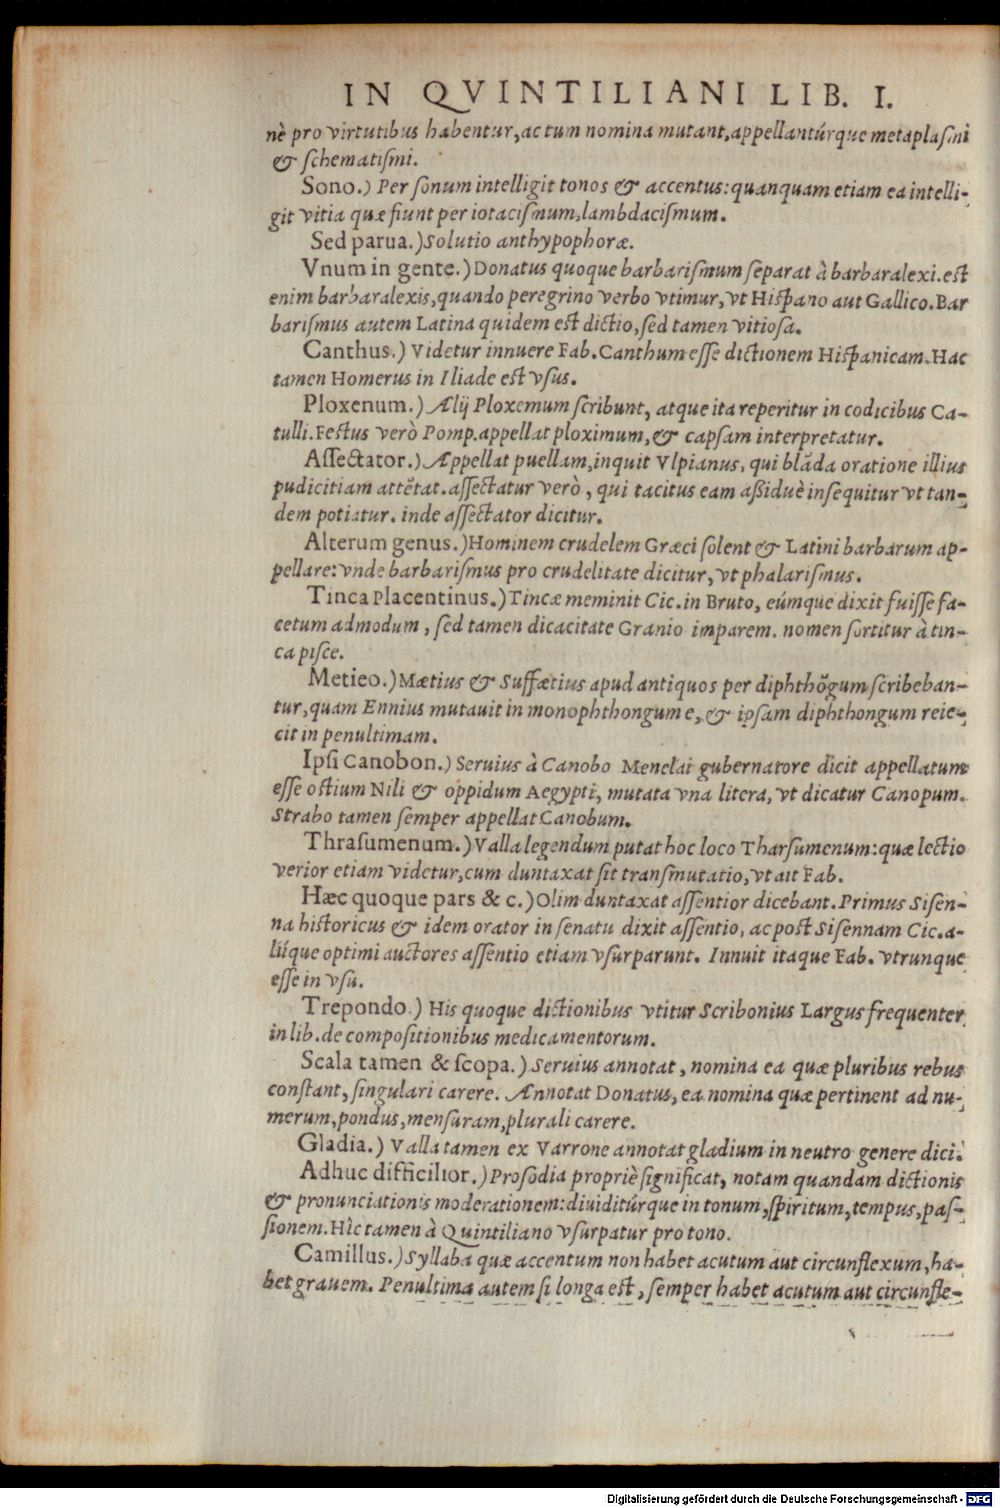 IN QVINTILIANI LIB. I.
nè pro virtutibus habentur, ac tum nomina mutant, appellantúrque metaplasmi
& schematismi.
Sono.) Per sonum intelligit tonos & accentus: quanquam etiam ea intelli-
git vitia quæ fiunt per iotacismum, lambdacismum.
Sed parua.) Solutio anthypophoræ.
Vnum in gente.) Donatus quoque barbarismum separat à barbaralexi. est
enim barbaralexis, quando peregrino verbo vtimur, vt Hispano aut Gallico. Bar
barismus autem Latina quidem est dictio, sed tamen vitiosa.
Canthus.) Videtur innuere Fab. Canthum esse dictionem Hispanicam. Hac
tamen Homerus in Iliade est vsus.
Ploxenum.) Alij Ploxemum scribunt, atque ita reperitur in codicibus Ca-
tulli. Festus verò Pomp. appellat ploximum, & capsam interpretatur.
Assectator.) Appellat puellam, inquit Vlpianus, qui blãda oratione illius
pudicitiam attẽtat. assectatur verò, qui tacitus eam aßiduè insequitur vt tan-
dem potiatur. inde assectator dicitur.
Alterum genus.) Hominem crudelem Græci solent & Latini barbarum ap-
pellare: vnde barbarismus pro crudelitate dicitur, vt phalarismus.
Tinca Placentinus.) Tincæ meminit Cic. in Bruto, eúmque dixit fuisse fa-
cetum admodum, sed tamen dicacitate Granio imparem. nomen sortitur à tin-
ca pisce.
Metieo.) Mætius & Suffætius apud antiquos per diphthõgum scribeban-
tur, quam Ennius mutauit in monophthongum e, & ipsam diphthongum reie-
cit in penultimam.
Ipsi Canobon.) Seruius à Canobo Menelai gubernatore dicit appellatum
esse ostium Nili & oppidum Aegypti, mutata vna litera, vt dicatur Canopum.
Strabo tamen semper appellat Canobum.
Thrasumenum.) Valla legendum putat hoc loco Tharsumenum: quæ lectio
verior etiam videtur, cum duntaxat sit transmutatio, vt ait Fab.
Hæc quoque pars & c.) Olim duntaxat assentior dicebant. Primus Sisen-
na historicus & idem orator in senatu dixit assentio, ac post Sisennam Cic. a-
liíque optimi auctores assentio etiam vsurparunt. Innuit itaque Fab. vtrunque
esse in vsu.
Trepondo.) His quoque dictionibus vtitur Scribonius Largus frequenter
in lib. de compositionibus medicamentorum.
Scala tamen & scopa.) Seruius annotat, nomina ea quæ pluribus rebus
constant, singulari carere. Annotat Donatus, ea nomina quæ pertinent ad nu-
merum, pondus, mensuram, plurali carere.
Gladia.) Valla tamen ex Varrone annotat gladium in neutro genere dici.
Adhuc difficilior.) Prosodia propriè significat, notam quandam dictionis
& pronunciationis moderationem: diuiditúrque in tonum, spiritum, tempus, pas-
sionem. Hìc tamen à Quintiliano vsurpatur pro tono.
Camillus.) Syllaba quæ accentum non habet acutum aut circunflexum, ha-
bet grauem. Penultima autem si longa est, semper habet acutum aut circunfle-
Digitalisierung gefördert durch die Deutsche Forschungsgemeinschaft - DFG